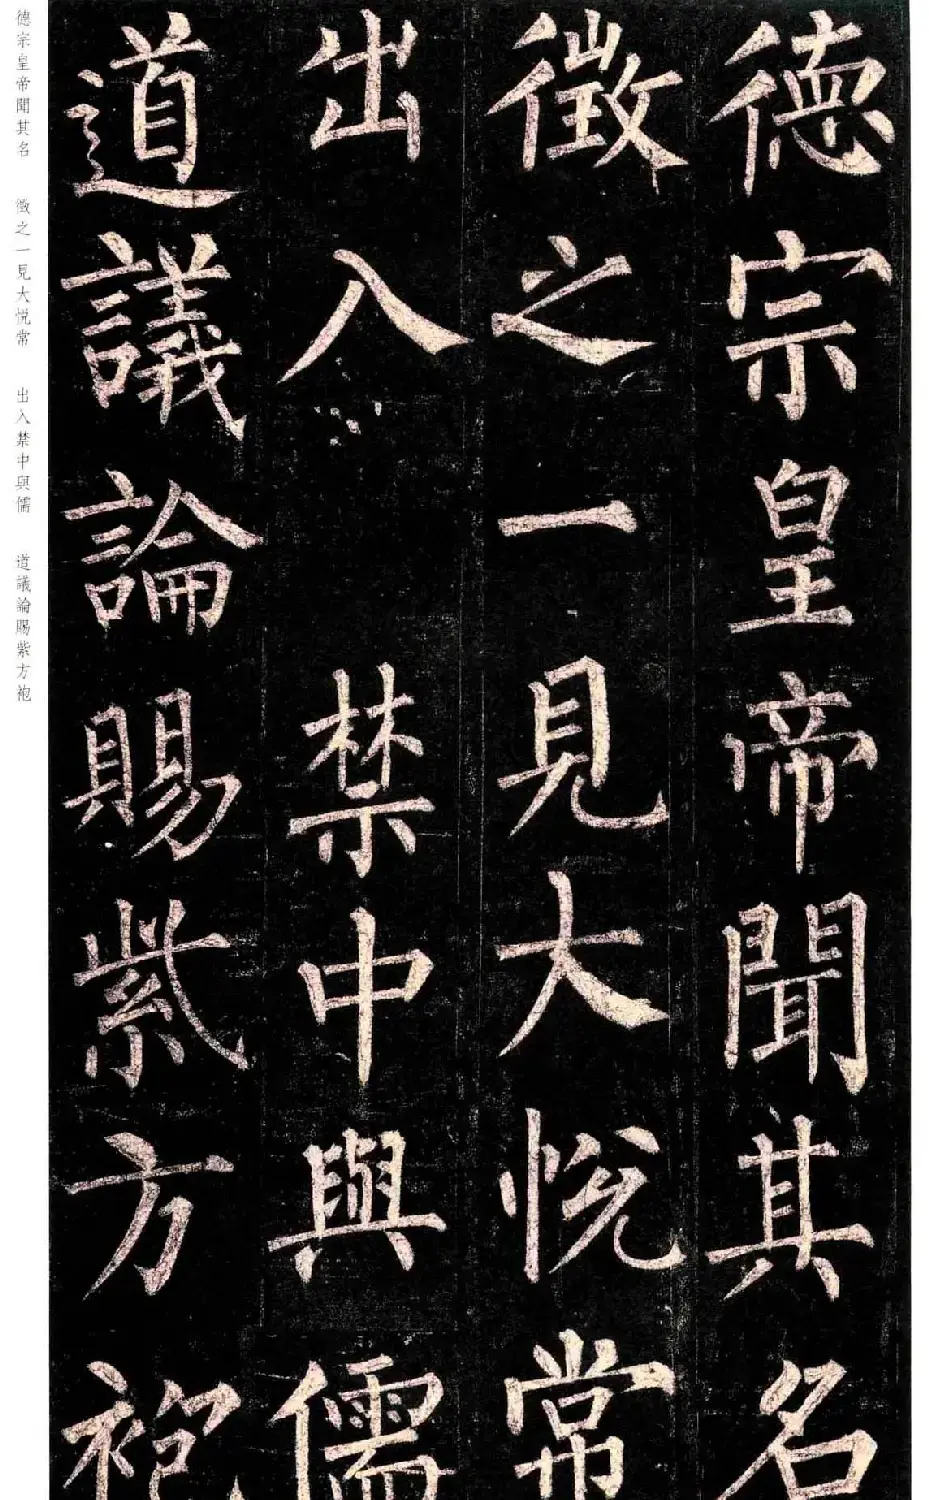 德宗皇帝聞其名
徵之一見大悅常
出入禁中與儒
道議論賜紫方袍
德宗皇帝聞其名 徵之一見大悅常 出入禁中與儒 道議論賜紫方袍